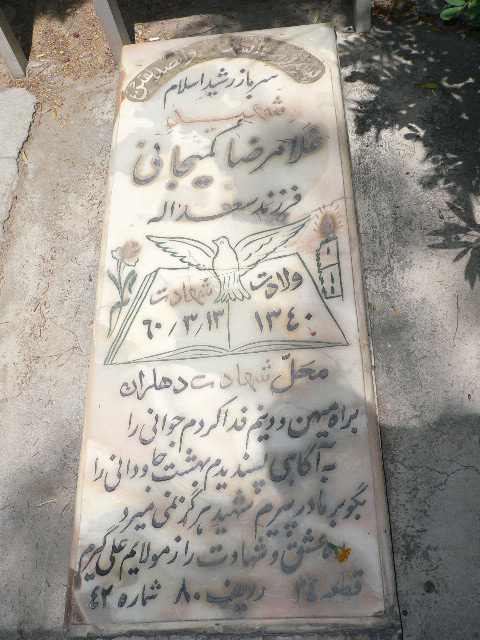 سرباز رشید اسلام
شهید
غلامرضا کمیجانی
فرزند سعداله
ولادت شهادت
۱۳۴۰ ۶۰/۳/۱۳
محلّ شهادت دهلران
براه میهن و دینم فدا کردم جوانی را
به آگاهی پسندیدم بهشت جاودانی را
بگو بر مادر پیرم شهید هرگز نمی میرد
عشق و شهادت را ز مولایم علی گیرم
قطعه ۲۴ ردیف ۸۰ شماره ۴۲